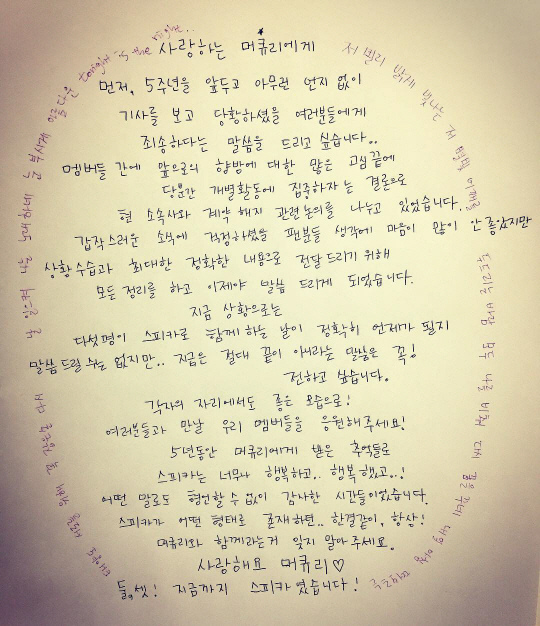 사랑하는 머큐리에게
먼저, 5주년을 앞두고 아무런 언지 없이
기사를 보고 당황하셨을 여러분들에게
죄송하다는 말씀을 드리고 싶습니다..
멤버들 간에 앞으로의 향방에 대한 많은 고심 끝에
당분간 개별활동에 집중하자는 결론으로
현 소속사와 계약 해지 관련 논의를 나누고 있었습니다.
갑작스러운 소식에 걱정하셨을 팬분들 생각에 마음이 많이 안 좋았지만
상황 수습과 최대한 정확한 내용으로 전달 드리기 위해
모든 정리를 하고 이제야 말씀 드리게 되었습니다.
지금 상황으로는
다섯명이 스피카로 함께 하는 날이 정확히 언제가 될지
말씀드릴 수는 없지만.. 지금은 절대 끝이 아니라는 말씀은 꼭!
전하고 싶습니다.
각자의 자리에서도 좋은 모습으로!
여러분들과 만날 우리 멤버들을 응원해주세요!
5년동안 머큐리에게 받은 추억들로
스피카는 너무나 행복하고.. 행복했고..!
어떤 말로도 형언할 수 없이 감사한 시간들이었습니다.
스피카가 어떤 형태로 존재하던.. 한결같이, 항상!
머큐리와 함께라는거 잊지 말아주세요.
사랑해요 머큐리♡
둘,셋! 지금까지 스피카였습니다!
눈 부시게 아름다운 tonight is the night..
저 멀리 밝게 빛나는 저 별빛